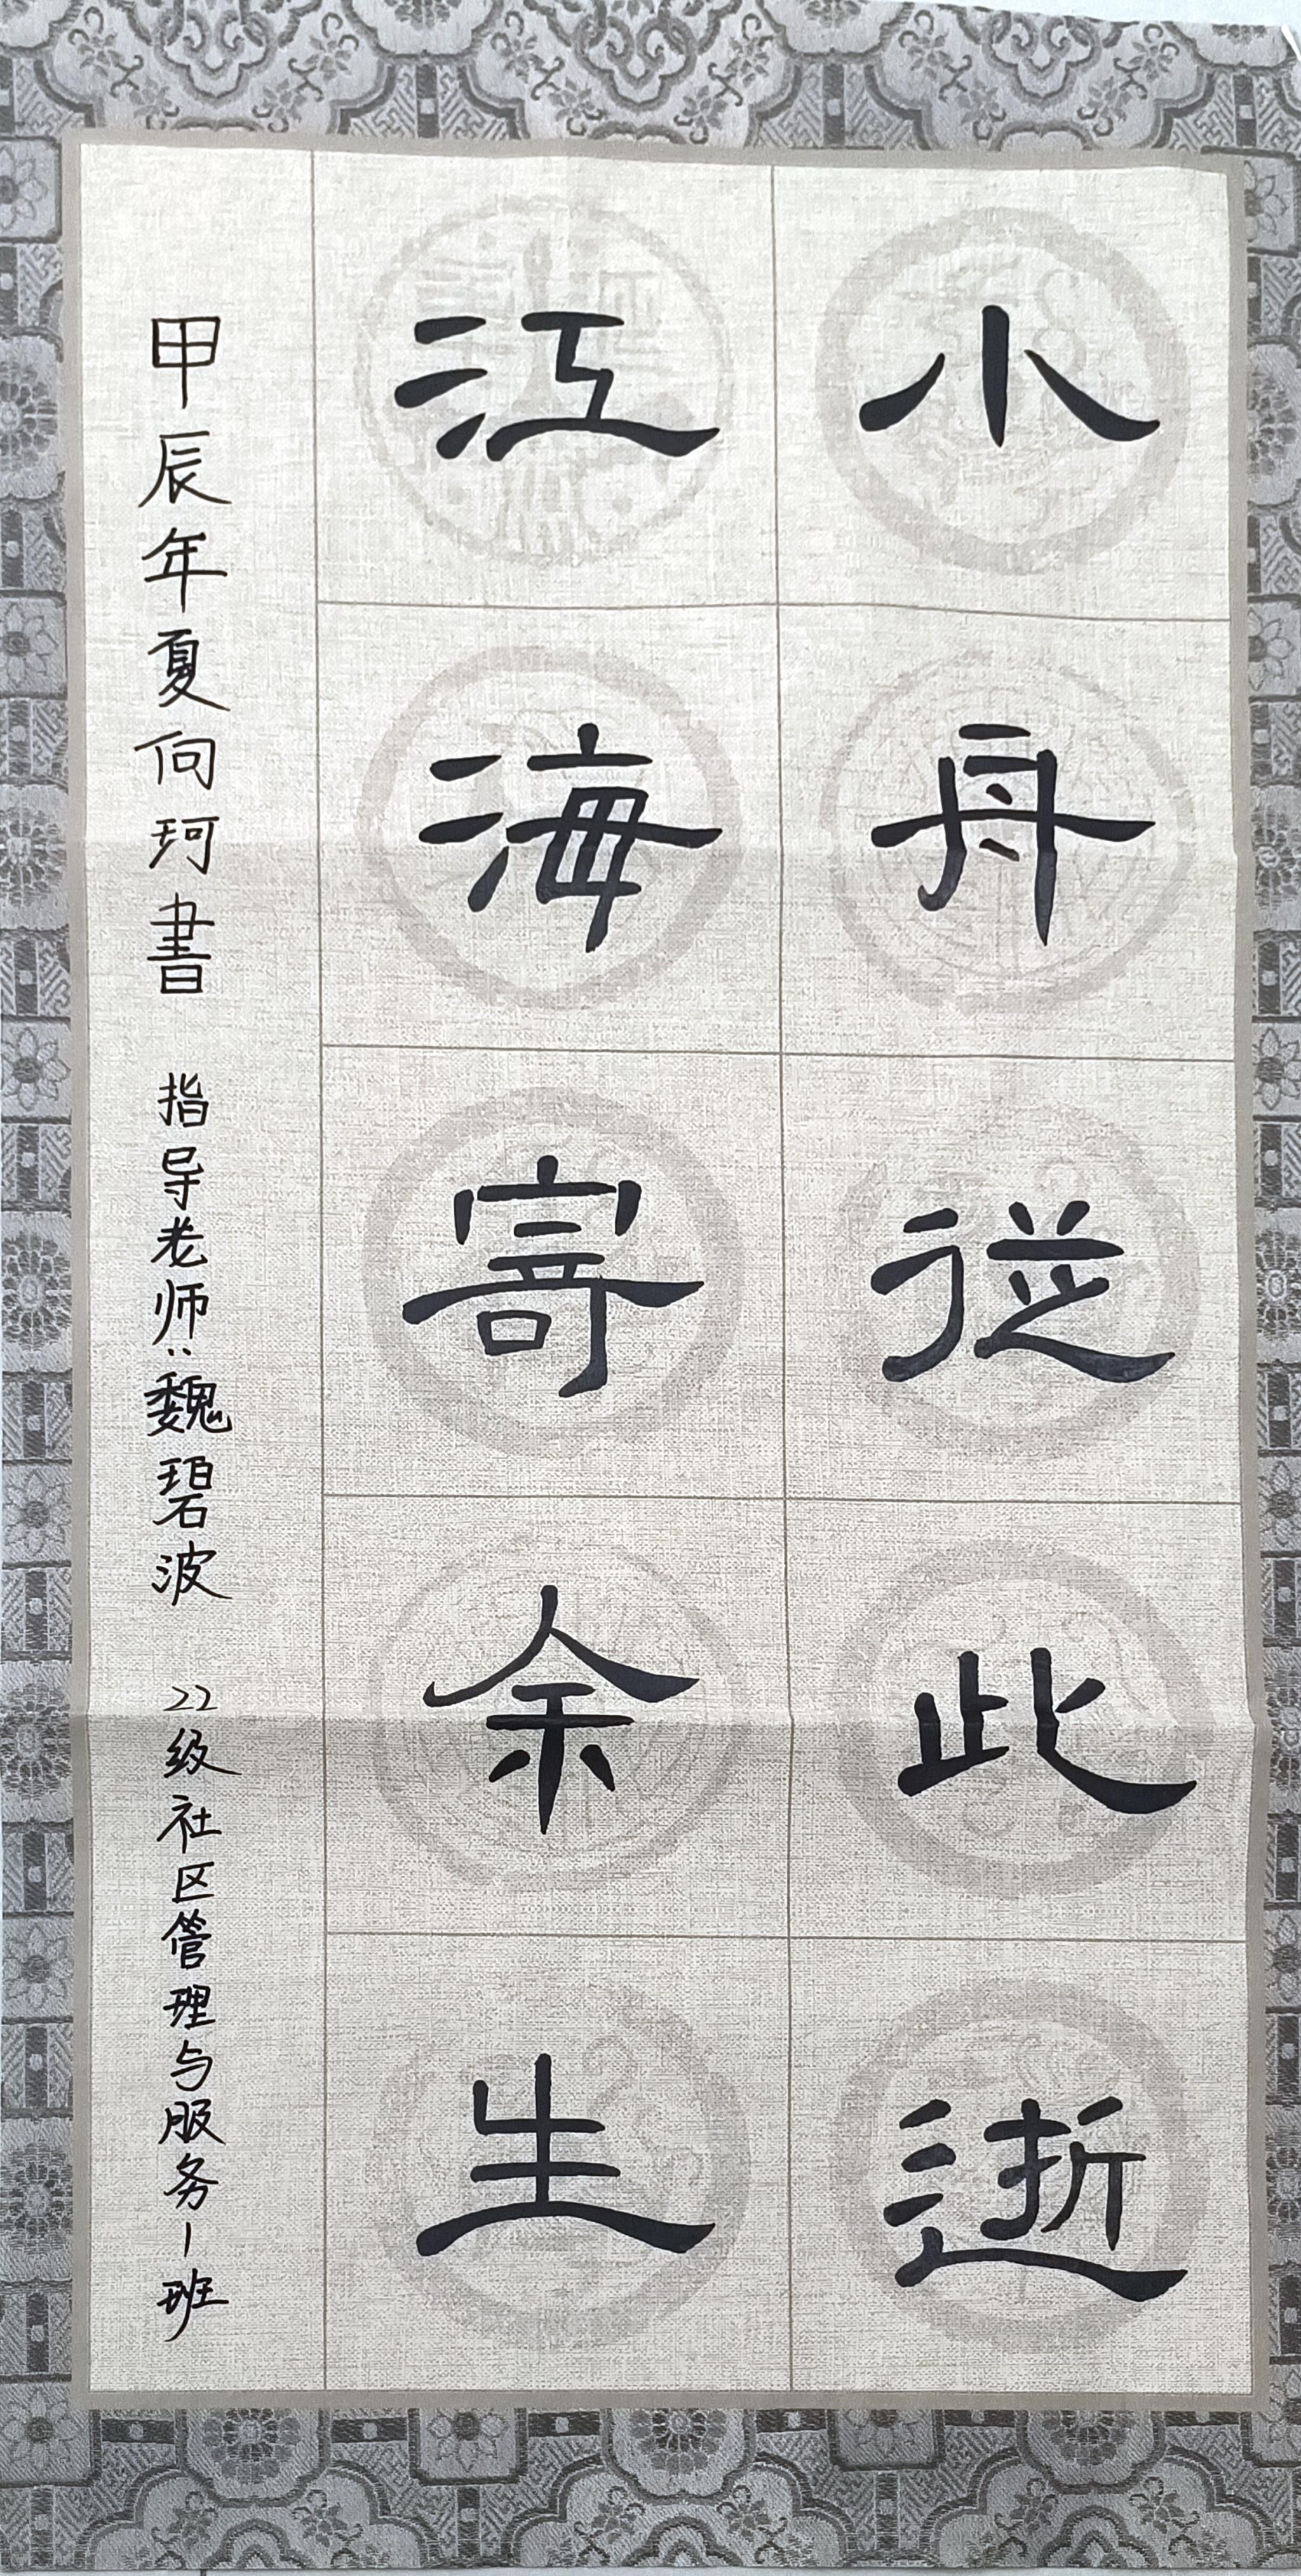 小舟從此逝
江海寄余生
甲辰年夏向珂書 指导老师：魏碧波 22级社区管理与服务一班